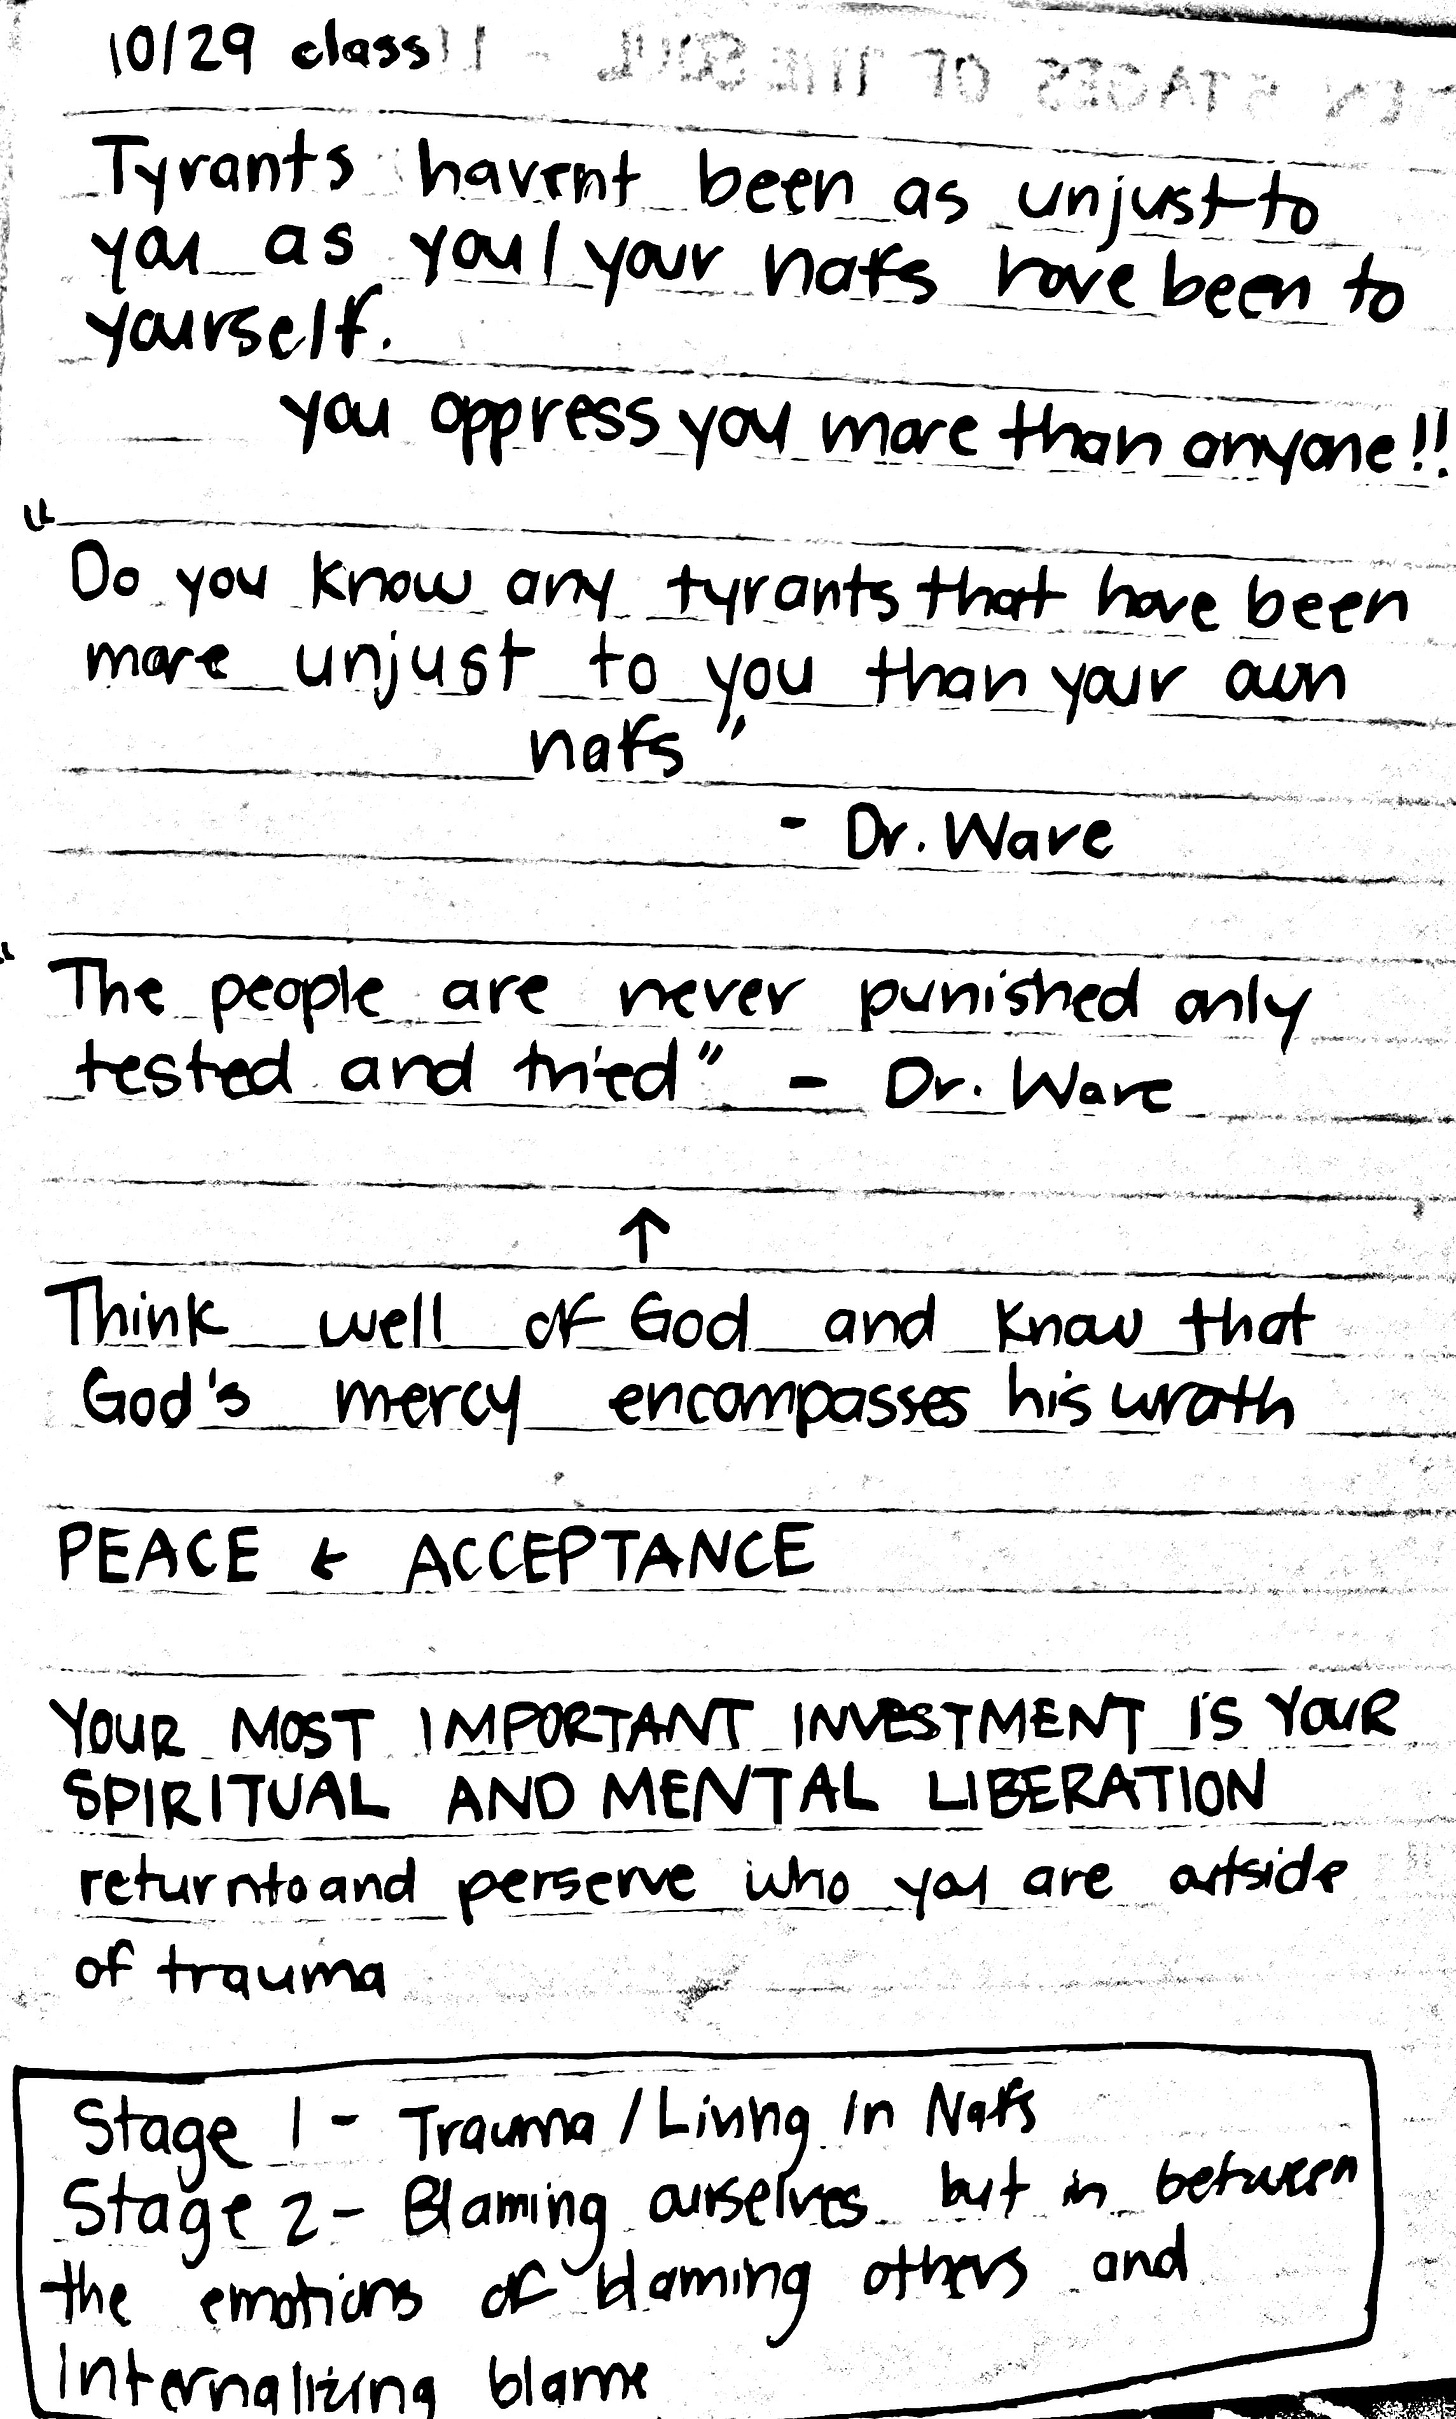 10/29 class
Tyrants havent been as unjust to
you as you/your nafs have been to
yourself.
you oppress you more than anyone!!
"
Do you know any tyrants that have been
more unjust to you than your own
nafs"
- Dr. Ware
"
The people are never punished only
tested and tried" - Dr. Ware
↑
Think well of God and know that
God's mercy encompasses his wrath
PEACE & ACCEPTANCE
YOUR MOST IMPORTANT INVESTMENT IS YOUR
SPIRITUAL AND MENTAL LIBERATION
return to and perserve who you are outside
of trauma
Stage 1 - Trauma / Living In Nafs
Stage 2 - Blaming ourselves but in between
the emotions of blaming others and
Internalizing blame